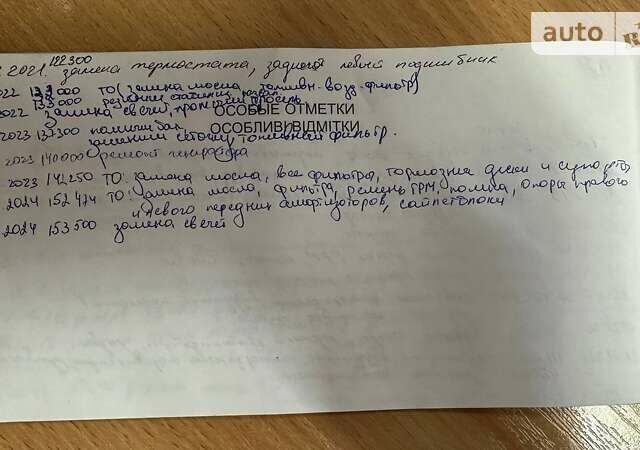 auto RI
122300
2021. замена термостата, задний левый подшибник
022 132000 ТО (замена масла, топливн. возд. фильтр)
133000 резинки стабилиз, развал
022 замена свечи, промыли дросель
ОСОБЫЕ ОТМЕТКИ
ОСОБЛИВІ ВІДМІТКИ
2023 137300 помыли бак
заменили сеточку, топливный фильтр.
2023 140000 ремонт генератора
2023 142250 ТО: замена масла, все фильтры, тормозные диски и
2024 152424 ТО: замена масло, фильтра, ремень ГРМ, помпа, опоры правого
и левого передних амортизаторов, сайлетблоки
2024 153500 замена свечей